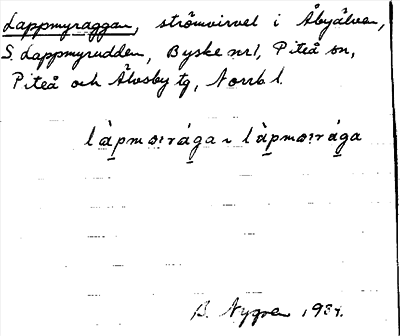 Lappmyraggan, strömvirvel i Åbyälven,
S. Lappmyrudden, Byske nr 1, Piteå sn,
Piteå och Älvsby tg, Norrb l.
B. Nygren 1937.